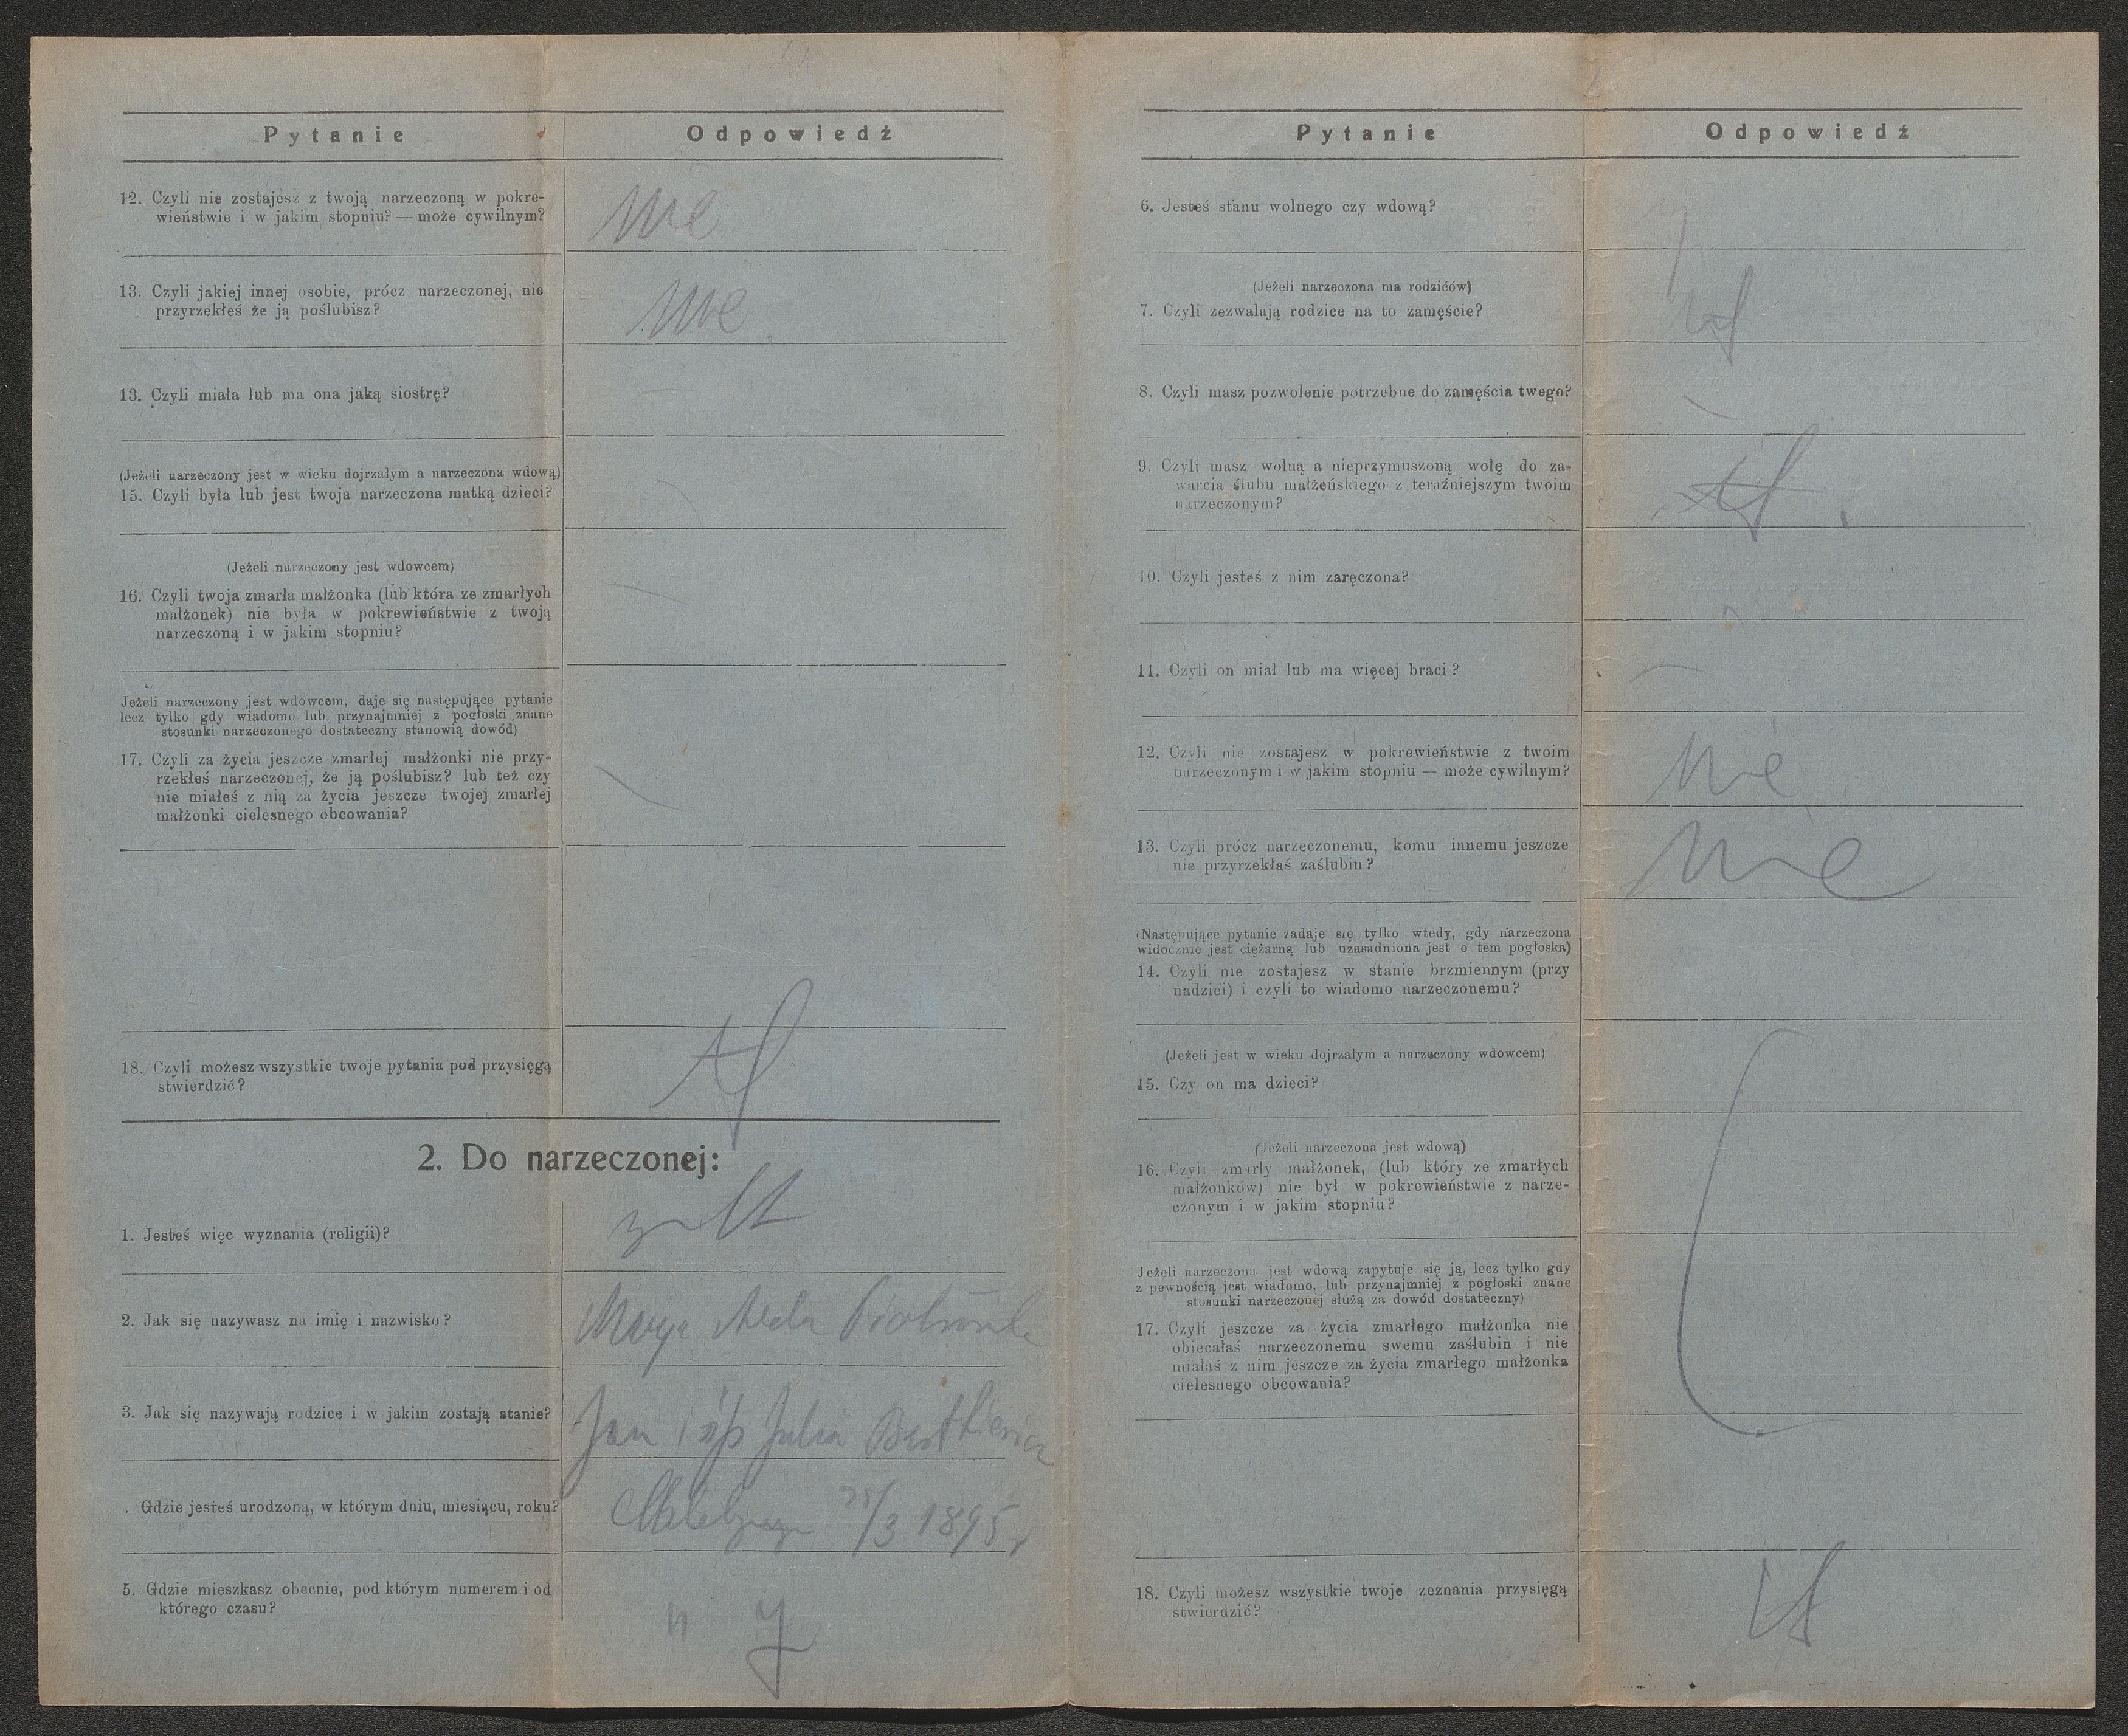 Pytanie Odpowiedź
12. Czyli nie zostajesz z twoją narzeczoną w pokre-
wieństwie i w jakim stopniu? — może cywilnym?
nie
13. Czyli jakiej innej osobie, prócz narzeczonej, nie
przyrzekłeś że ją poślubisz?
nie
13. Czyli miała lub ma ona jaką siostrę?
(Jeżeli narzeczony jest w wieku dojrzałym a narzeczona wdową)
15. Czyli była lub jest twoja narzeczona matką dzieci?
(Jeżeli narzeczony jest wdowcem)
16. Czyli twoja zmarła małżonka (lub która ze zmarłych
małżonek) nie była w pokrewieństwie z twoją
narzeczoną i w jakim stopniu?
Jeżeli narzeczony jest wdowcem, daje się następujące pytanie
lecz tylko gdy wiadomo lub przynajmniej z pogłoski znane
stosunki narzeczonego dostateczny stanowią dowód)
17. Czyli za życia jeszcze zmarłej małżonki nie przy-
rzekłeś narzeczonej, że ją poślubisz? lub też czy
nie miałeś z nią za życia jeszcze twojej zmarłej
małżonki cielesnego obcowania?
18. Czyli możesz wszystkie twoje pytania pod przysięgą
stwierdzić?
2. Do narzeczonej:
1. Jesteś więc wyznania (religii)?
2. Jak się nazywasz na imię i nazwisko?
Marya
3. Jak się nazywają rodzice i w jakim zostają stanie?
Jan i śp Julia
. Gdzie jesteś urodzoną, w którym dniu, miesiącu, roku?
25/3 1895 r
5. Gdzie mieszkasz obecnie, pod którym numerem i od
którego czasu?
Pytanie Odpowiedź
6. Jesteś stanu wolnego czy wdową?
(Jeżeli narzeczona ma rodziców)
7. Czyli zezwalają rodzice na to zamęście?
8. Czyli masz pozwolenie potrzebne do zamęścia twego?
9. Czyli masz wolną a nieprzymuszoną wolę do za-
warcia ślubu małżeńskiego z teraźniejszym twoim
narzeczonym?
10. Czyli jesteś z nim zaręczona?
11. Czyli on miał lub ma więcej braci?
12. Czyli nie zostajesz w pokrewieństwie z twoim
narzeczonym i w jakim stopniu — może cywilnym?
nie
13. Czyli prócz narzeczonemu, komu innemu jeszcze
nie przyrzekłaś zaślubin?
nie
(Następujące pytanie zadaje się tylko wtedy, gdy narzeczona
widocznie jest ciężarną lub uzasadniona jest o tem pogłoska)
14. Czyli nie zostajesz w stanie brzmiennym (przy
nadziei) i czyli to wiadomo narzeczonemu?
(Jeżeli jest w wieku dojrzałym a narzeczony wdowcem)
15. Czy on ma dzieci?
(Jeżeli narzeczona jest wdową)
16. Czyli zmarły małżonek, (lub który ze zmarłych
małżonków) nie był w pokrewieństwie z narze-
czonym i w jakim stopniu?
Jeżeli narzeczona jest wdową zapytuje się ją, lecz tylko gdy
z pewnością jest wiadomo, lub przynajmniej z pogłoski znane
stosunki narzeczonej służą za dowód dostateczny)
17. Czyli jeszcze za życia zmarłego małżonka nie
obiecałaś narzeczonemu swemu zaślubin i nie
miałaś z nim jeszcze za życia zmarłego małżonka
cielesnego obcowania?
18. Czyli możesz wszystkie twoje zeznania przysięgą
stwierdzić?